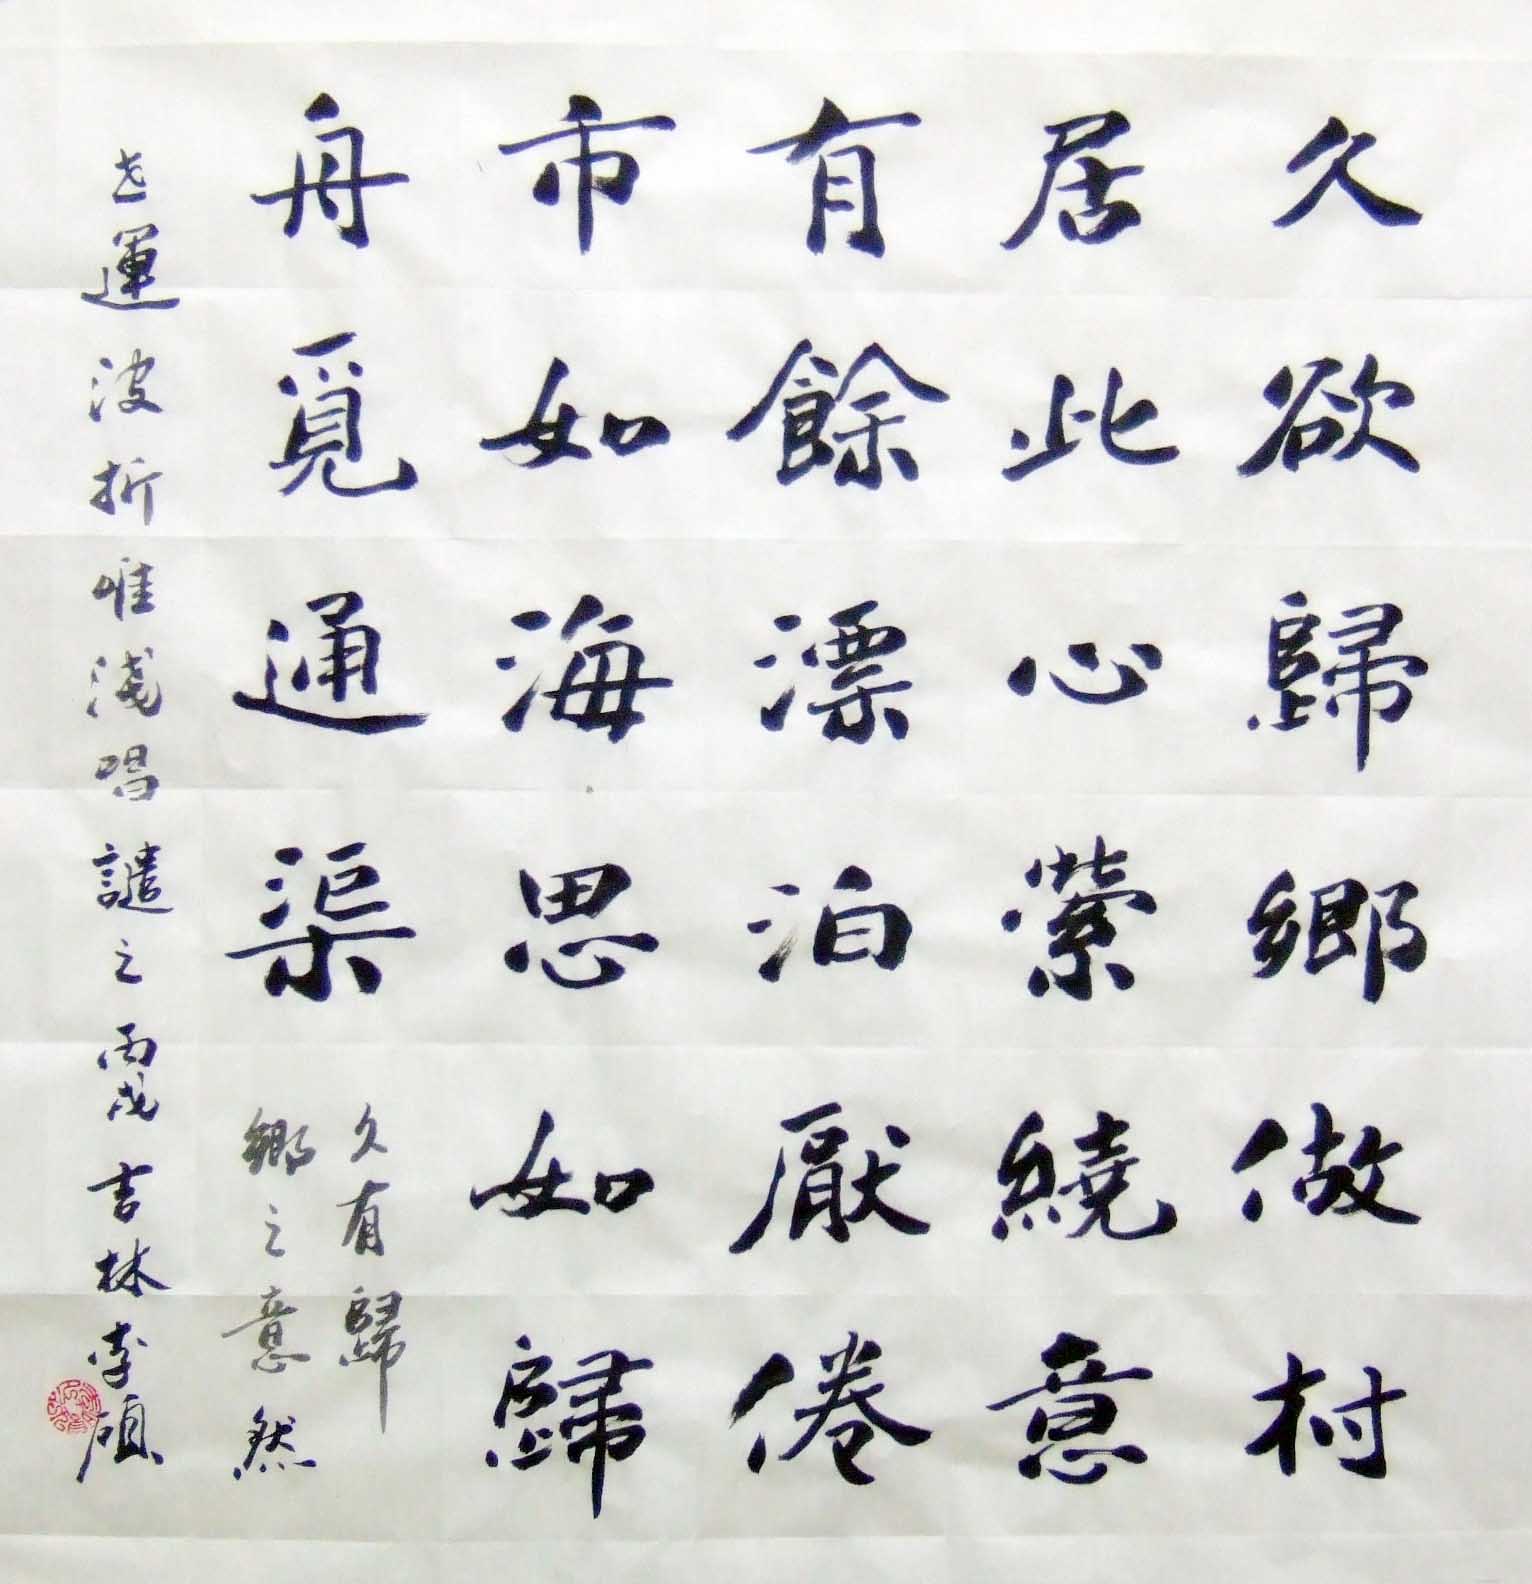 久欲歸鄉做村
居此心縈繞意
有餘漂泊厭倦
市如海思如歸
舟覓通渠
久有歸
鄉之意然
世運波折唯淺唱
譴之丙戌吉林李碩